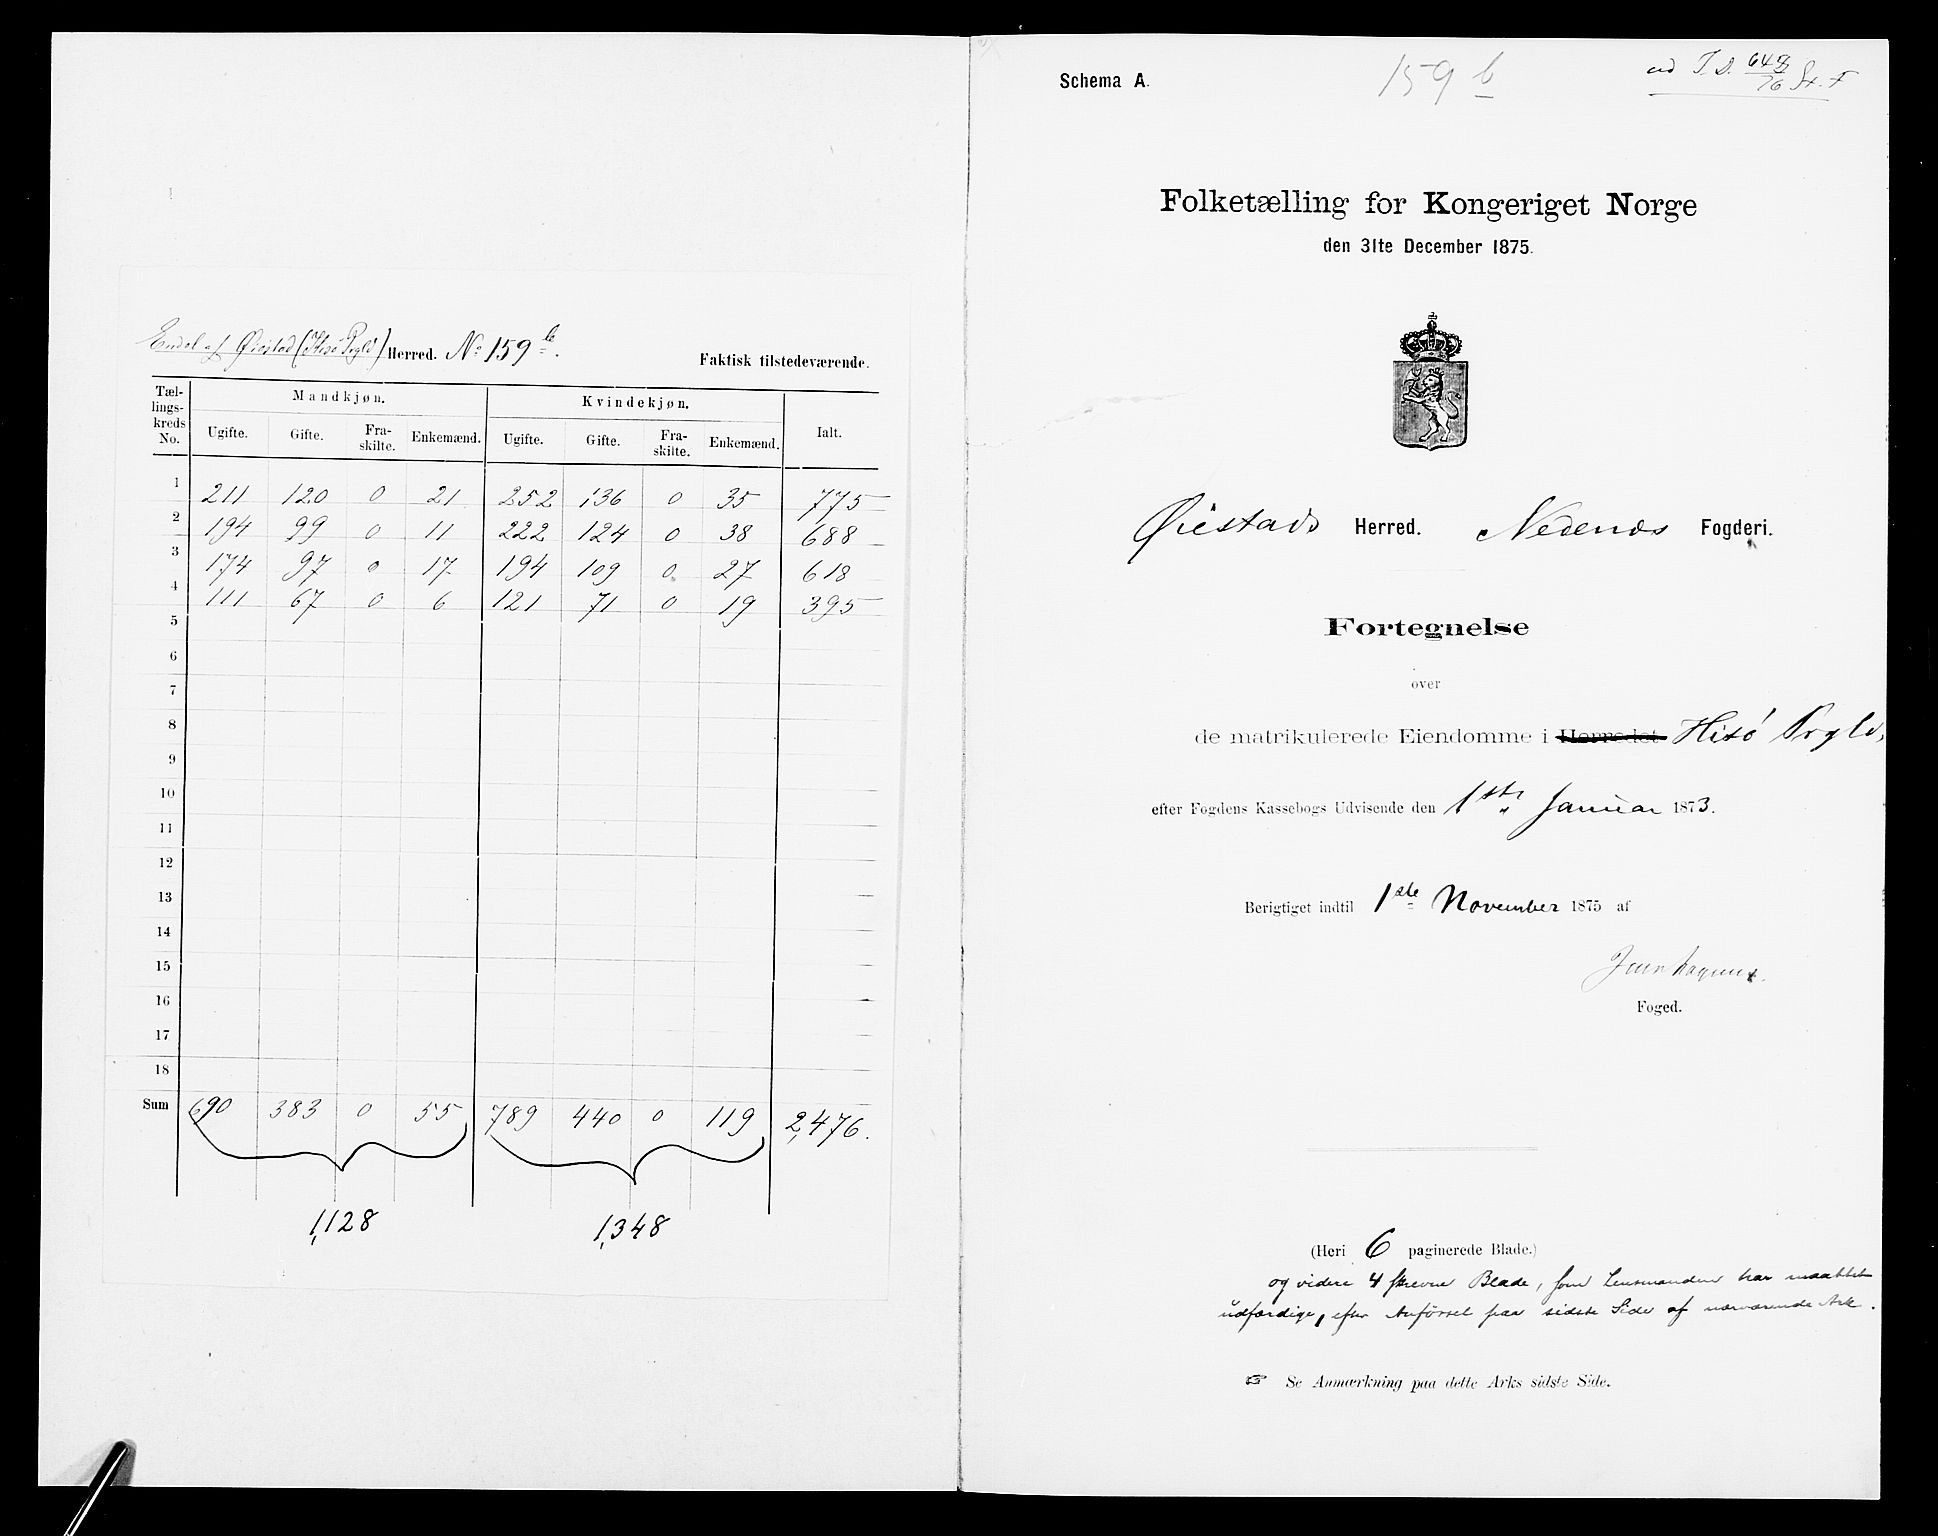 Endel af Øiestad (Hisø Prgld) Herred. No 159 b.
Faktisk tilstedeværende.
Tællingskreds No. | Mandkjøn. | Kvindekjøn. | Ialt.
Ugifte. | Gifte. | Fraskilte. | Enkemænd. | Ugifte. | Gifte. | Fraskilte. | Enkemænd.
1 | 211 | 120 | 0 | 21 | 252 | 136 | 0 | 35 | 775
2 | 194 | 99 | 0 | 11 | 222 | 124 | 0 | 38 | 688
3 | 174 | 97 | 0 | 17 | 194 | 109 | 0 | 27 | 618
4 | 111 | 67 | 0 | 6 | 121 | 71 | 0 | 19 | 395
5
6
7
8
9
10
11
12
13
14
15
16
17
18
Sum | 690 | 383 | 0 | 55 | 789 | 440 | 0 | 119 | 2,476.
1,128 | 1,348
Schema A.
159 b
Folketælling for Kongeriget Norge
den 31te December 1875.
Øiestads Herred. Nedenæs Fogderi.
Fortegnelse
over
de matrikulerede Eiendomme i Herredet Hisø Prgld,
efter Fogdens Kassebogs Udvisende den 1ste Januar 1873.
Berigtiget indtil 1ste November 1875 af
Foged.
(Heri 6 paginerede Blade.)
og videre 4 skrevne Blade, som Lensmanden har maattet
udfærdige, efter Anførsel paa sidste Side af nærværende Ark.
☞ Se Anmærkning paa dette Arks sidste Side.